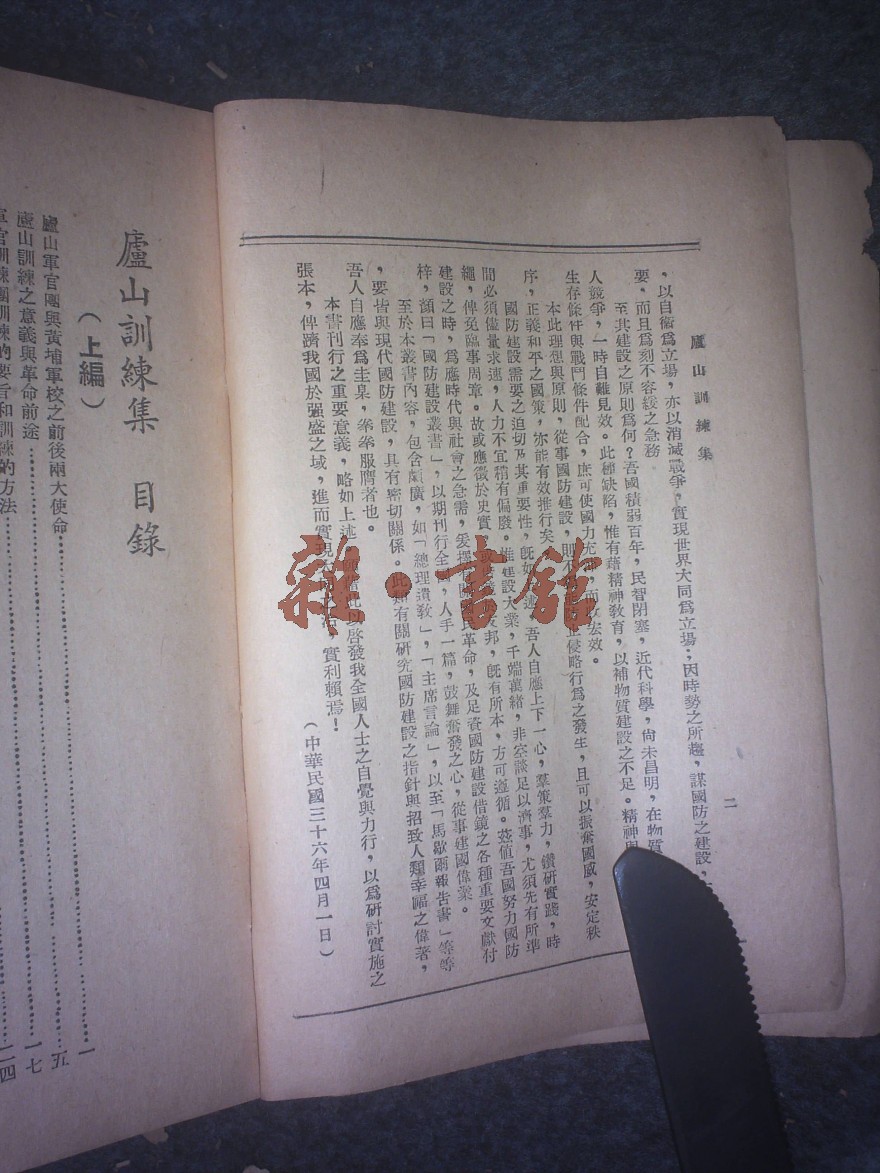 廬山訓練集
二
，以自衞爲立場，亦以消滅戰爭，實現世界大同爲立場；因時勢之所趨，謀國防之建設，
要，而且爲刻不容緩之急務
至其建設之原則爲何？吾國積弱百年，民智閉塞，近代科學，尙未昌明，在物質
人競爭，一時自難見效。此種缺陷，惟有藉精神敎育，以補物質建設之不足。精神
生存條件與戰鬥條件配合，庶可使國力充 而收宏效。
本此理想與原則，從事國防建設，則不 止侵略行爲之發生，且可以振奮國威，安定秩
序，正義和平之國策，亦能有效推行矣
國防建設需要之迫切及其重要性，旣如 述，吾人自應上下一心，羣策羣力，鑽研實踐，時
間必須儘量求速，人力不宜稍有偏廢。惟建設大業，千端萬緒，非空談足以濟事，尤須先有所準
繩，俾免臨事周章。故或應徵於史實 友邦，旣有所本，方可遵循。茲值吾國努力國防
建設之時，爲應時代與社會之急需，爰擇 國民革命，及足資國防建設借鏡之各種重要文獻付
梓，顏曰「國防建設叢書」，以期刊行全 ，人手一篇，鼓舞奮發之心，從事建國偉業。
至於本叢書內容，包含頗廣，如「總理遺敎」，「主席言論」，以至「馬歇爾報吿書」等等
，要皆與現代國防建設，具有密切關係。此類有關硏究國防建設之指針與招致人類幸福之偉著，
吾人自應奉爲圭臬，拳拳服膺者也。
本書刊行之重要意義，略如上述 此以啓發我全國人士之自覺與力行，以爲硏討實施之
張本，俾躋我國於强盛之域，進而實現 ，實利賴焉！
（中華民國三十六年四月一日）
廬山訓練集 目錄
（上編）
廬山軍官團與黃埔軍校之前後兩大使命……一
廬山訓練之意義與革命前途……五
軍官訓練團訓練的要旨和訓練的方法……一七
二四
雜·書舘